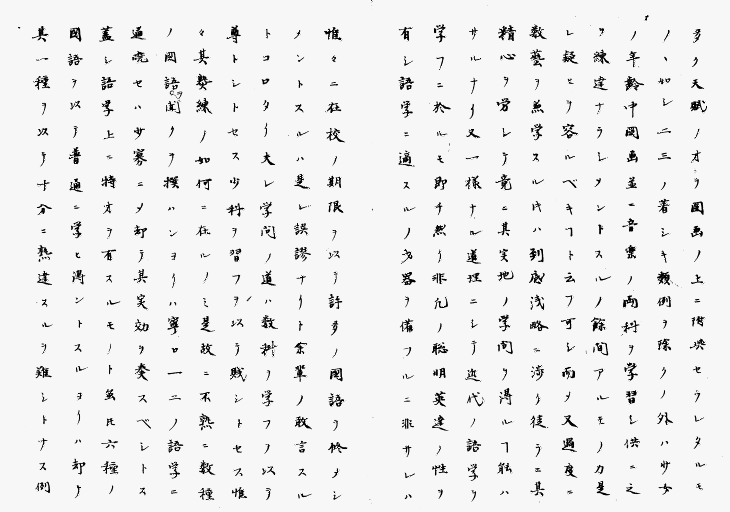 多ク天賦ノオヲ圖画ノ上ニ附與セラレタルモ
ノヽ如レ二三ノ著シキ類例ヲ除クノ外ハ少女
ノ年齢中圖画並ニ音樂ノ両科ヲ学習シ供ニ之
ヲ練達ナラレメントスルノ餘間アルモノカ是
レ疑ヒヲ容ルベキフト云フ可シ而メ又過度ニ
数藝ヲ兼学スル片ハ到底浅略ニ渉リ徒ラニ其
精心ヲ労レテ竟ニ其実地ノ学問ヲ得ルフ能ハ
サルナリ又一様ナル道理ニシテ近代ノ語学ヲ
学フニ於ルモ即チ然リ非凡ノ聡明英達ノ性ヲ
有シ語学ニ適スルノ才器ヲ備フルニ非サレハ
惟々ニ在校ノ期限ヲ以テ許多ノ國語ヲ修メシ
メントスルハ是レ誤謬ナリト余輩ノ敢言スル
トコロタリ大レ学問ノ道ハ数科ヲ学フヲ以テ
尊トシトセス少科ヲ習フヲ以テ賎シトセス惟
々其熟練ノ如何ニ在ルノミ是故ニ不熟ニ数種
ノ國語聞クヲ撰ハンヨリハ寧ロ一二ノ語学ニ
通暁セハ少寡ニメ却テ其実効ヲ奏スベシトス
蓋シ語学上ニ特オヲ有スルモノト雖氏六種ノ
國語ヲ以テ普通ニ学ヒ得ントスルヨリハ却テ
其一種ヲ以テ十分ニ熟達スルヲ難シトナス例